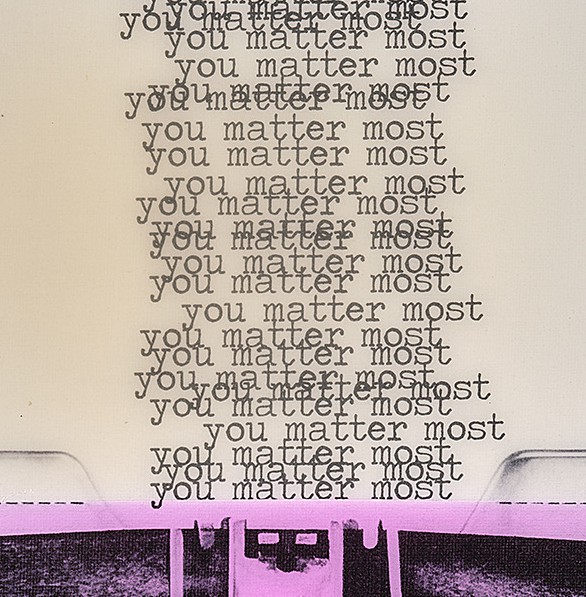 you matter most
you matter most
you matter most
you matter most
you matter most
you matter most
you matter most
you matter most
you matter most
you matter most
you matter most
you matter most
you matter most
you matter most
you matter most
you matter most
you matter most
you matter most
you matter most
you matter most
you matter most
you matter most
you matter most
you matter most